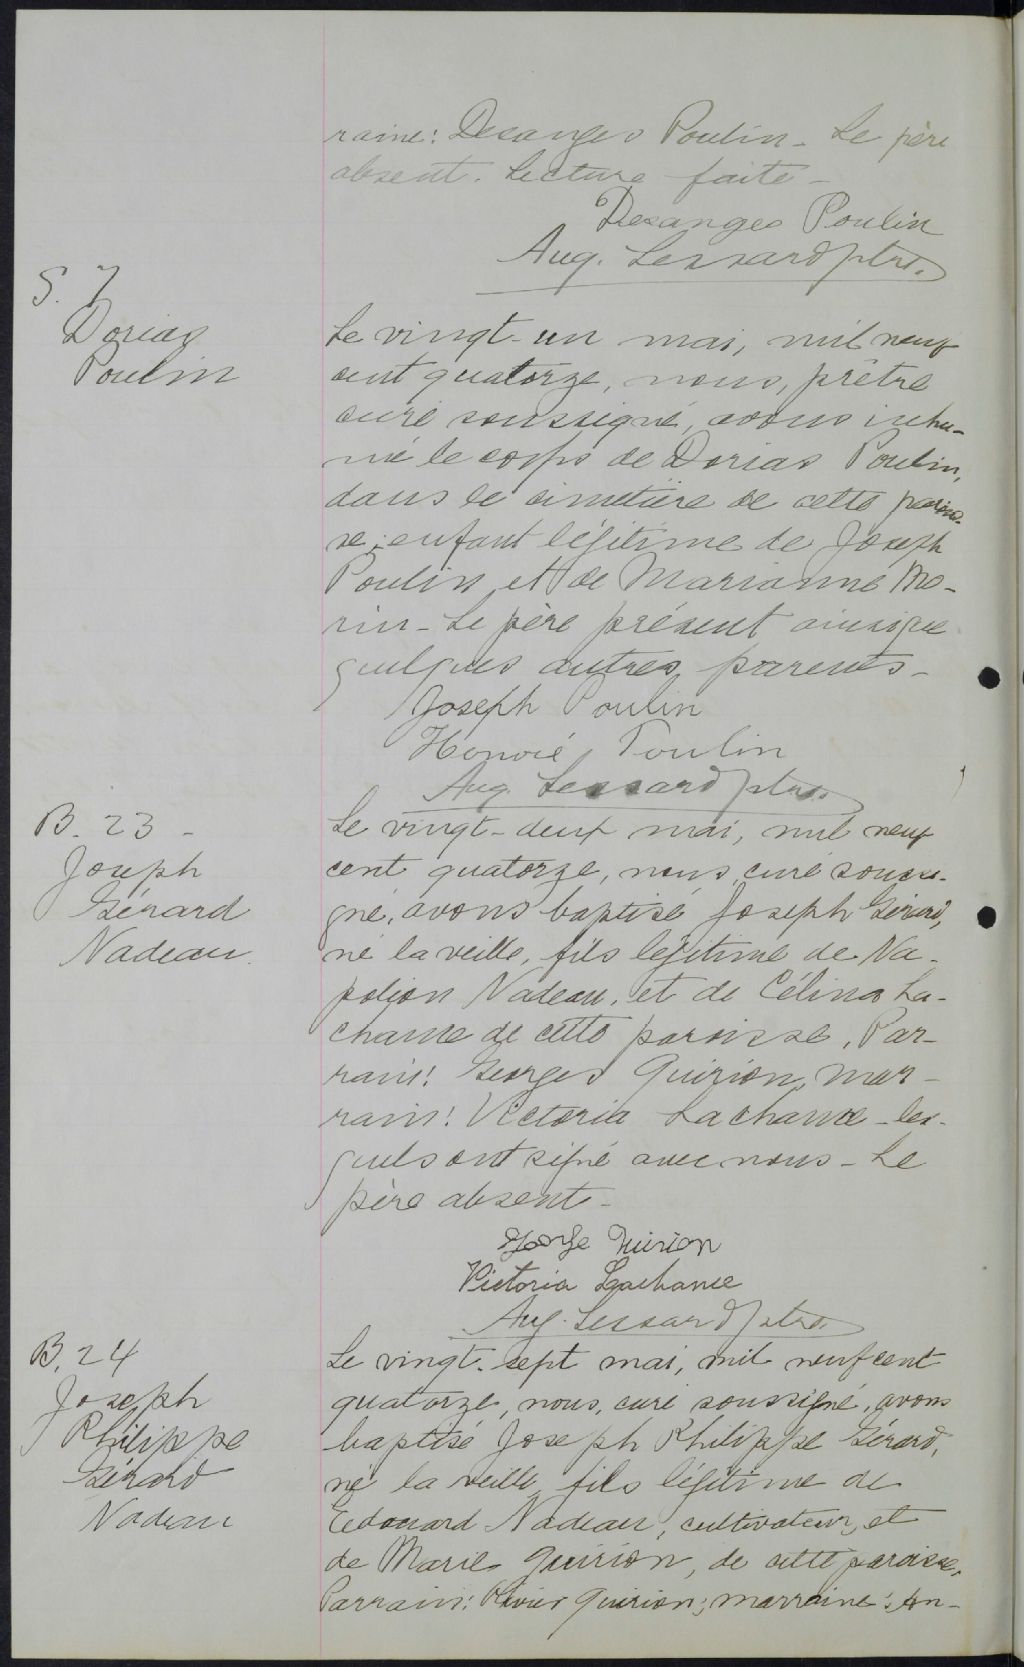 raine: Desanges Poulin - Le père
absent. Lecture faite -
Desanges Poulin
Aug. Lessard ptre.
S. 7
Dorias
Poulin
Le vingt-un mai, mil neuf
cent quatorze, nous, prêtre
curé soussigné, avons inhu-
mé le corps de Dorias Poulin,
dans le cimetière de cette parois-
se, enfant légitime de Joseph
Poulin et de Marianne Mo-
rin - Le père présent ainsi que
quelques autres parents -
Joseph Poulin
Honoré Poulin
Aug. Lessard ptre.
B. 23 -
Joseph
Gérard
Nadeau.
Le vingt-deux mai, mil neuf
cent quatorze, nous, curé soussi-
gné, avons baptisé Joseph Gérard,
né la veille, fils légitime de Na-
poléon Nadeau, et de Célina La-
chance de cette paroisse, Par-
rain: Georges Quirion, mar-
rain: Victoria Lachance - les-
quels ont signé avec nous - Le
père absent -
George Quirion
Victoria Lachance
Aug. Lessard ptre.
B. 24
Joseph
Philippe
Gérard
Nadeau
Le vingt-sept mai, mil neuf cent
quatorze, nous, curé soussigné, avons
baptisé Joseph Philippe Gérard,
né la veille, fils légitime de
Edouard Nadeau, cultivateur, et
de Marie Quirion, de cette paroisse.
Parrain: Olivier Quirion; marraine: An-